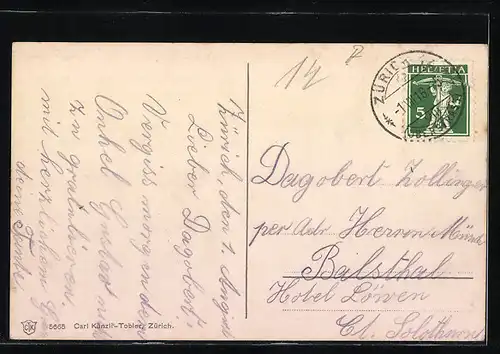 14
ZÜRICH
HELVETIA
5
Zürich, den 1. August
Lieber Dagobert!
Vergiss morgen dem
Onkel Gustav nicht
zu gratulieren.
mit herzlichem
deine Tante
Dagobert Zollinger
per Adr Herren Münch
Balsthal
Hotel Löwen
Ct. Solothurn
5665 Carl Künzli-Tobler, Zürich.